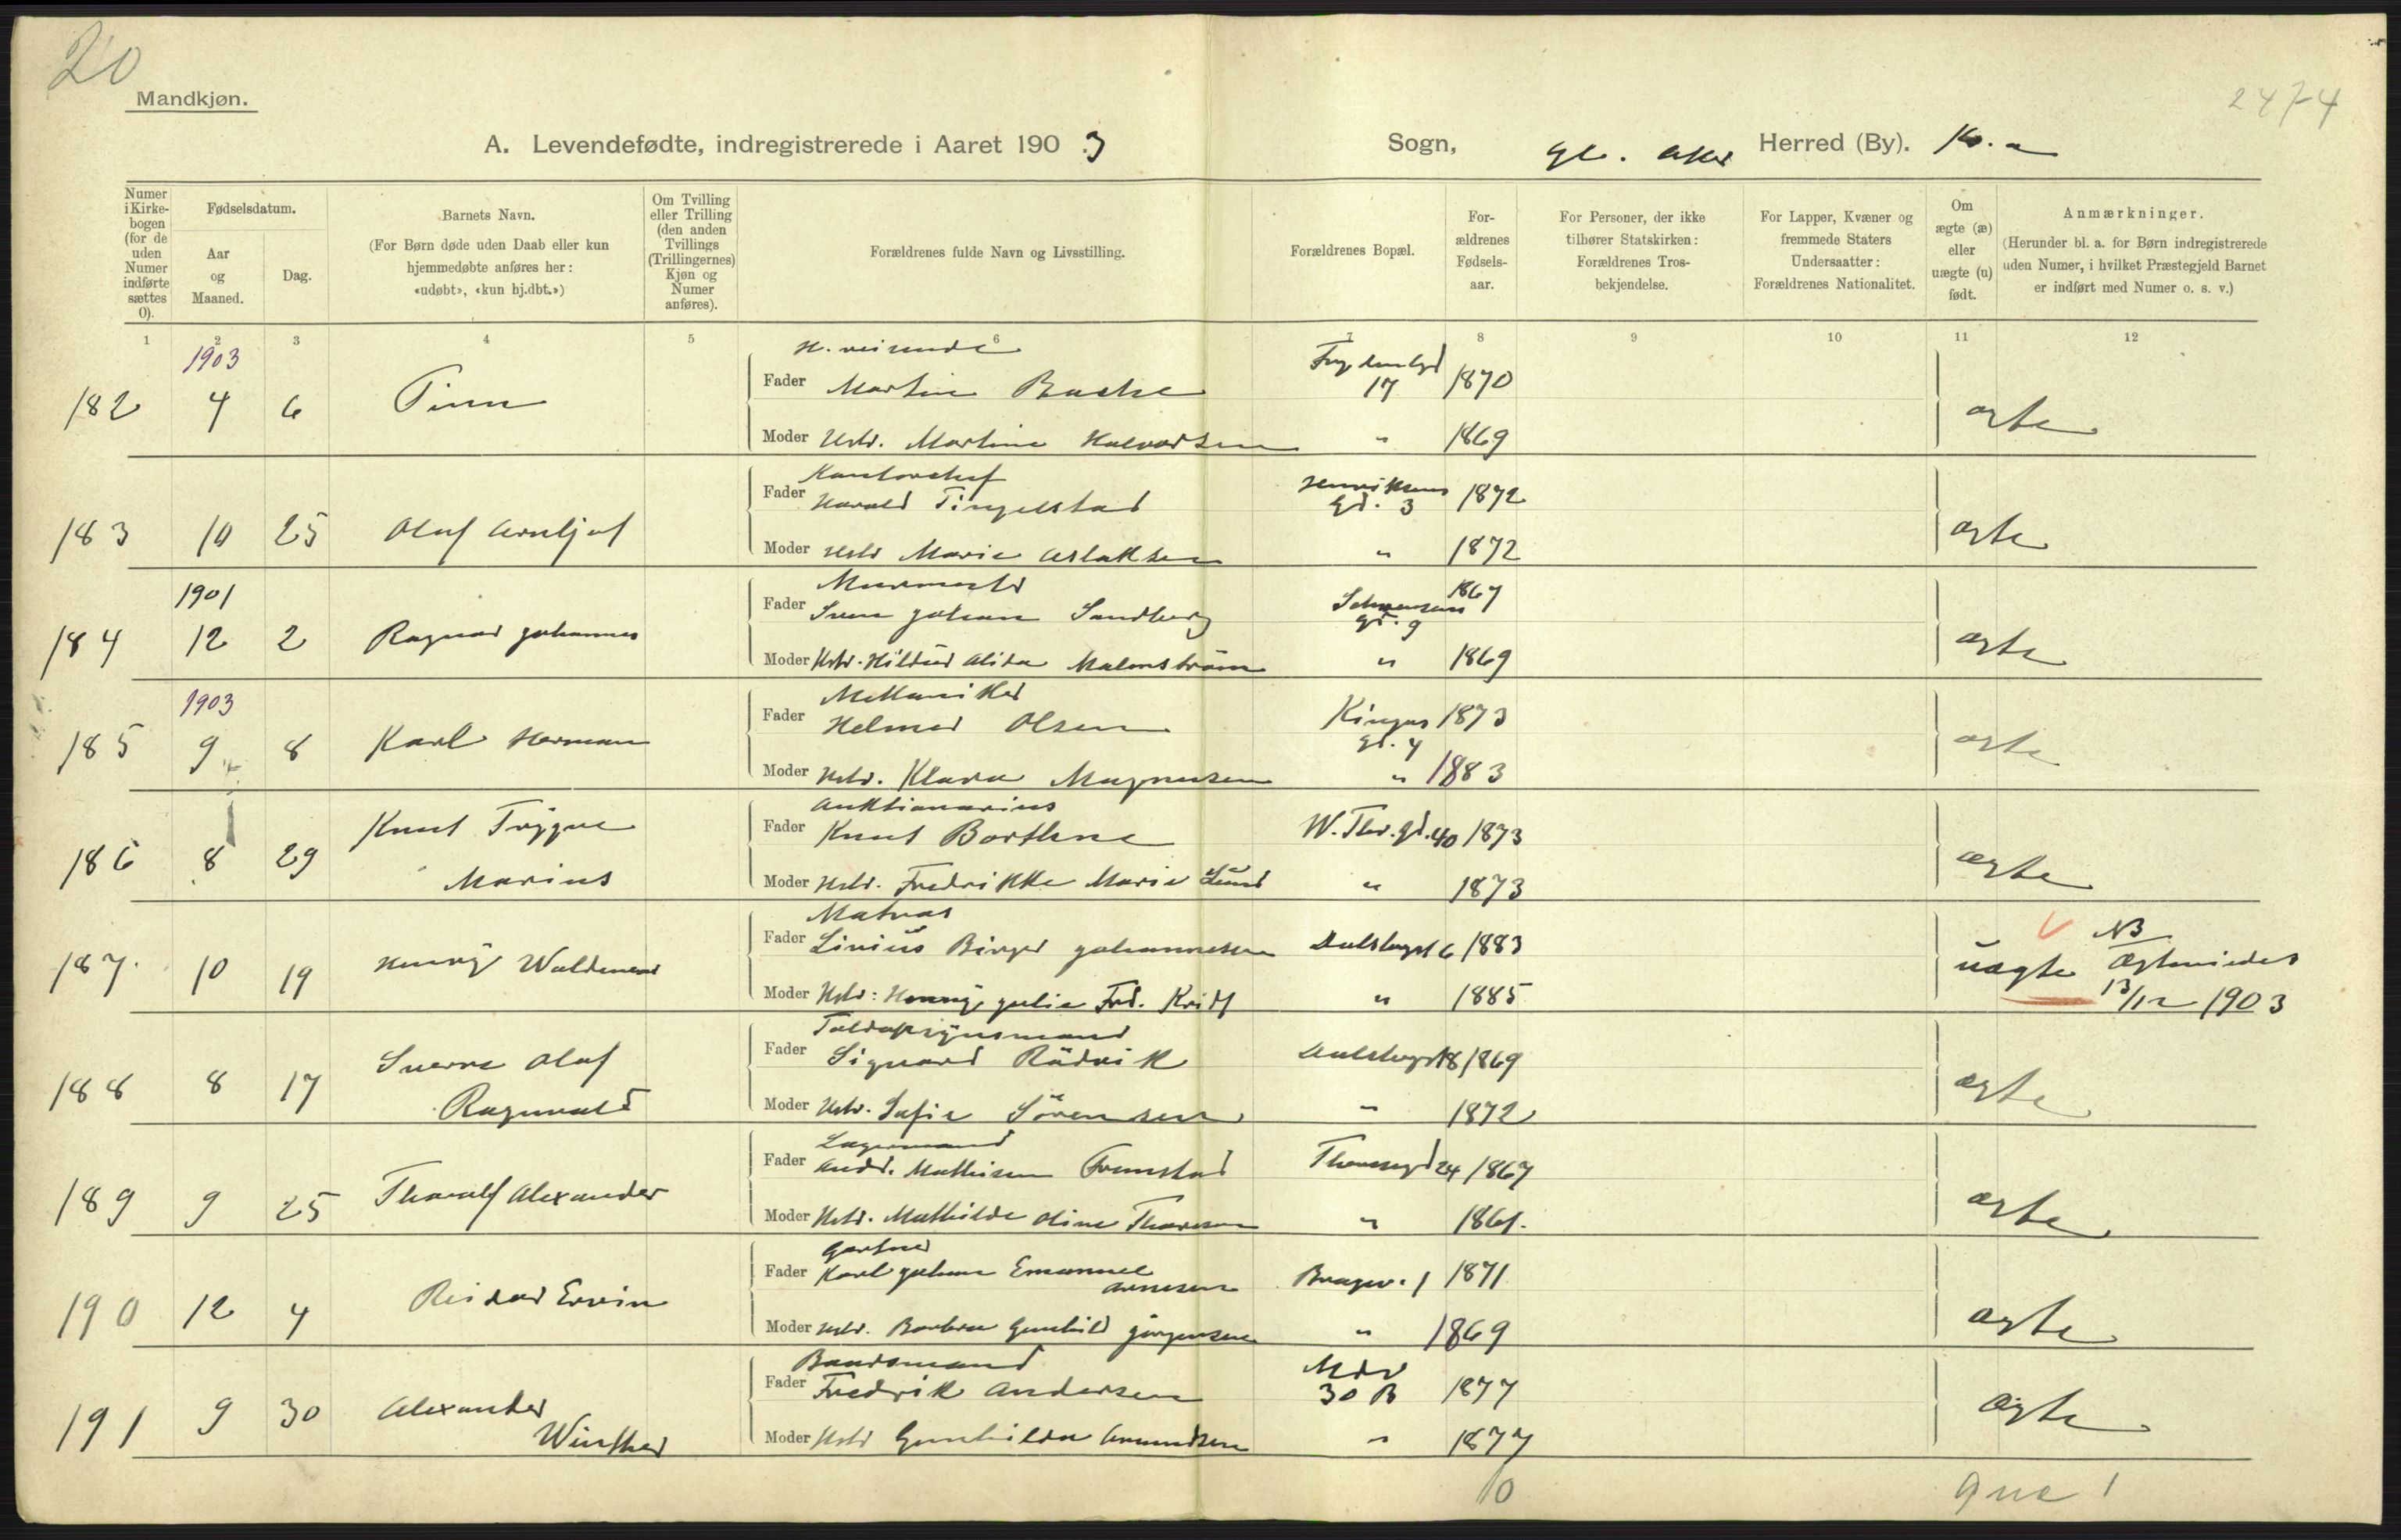 20
Mandkjøn.
2474
A. Levendefødte, indregistrerede i Aaret 1903
Sogn, Gl. Aker Herred (By). Kr.a
Numer i Kirkebogen (for de uden Numer indførte sættes 0).
Fødselsdatum.
Aar og Maaned.
Dag.
Barnets Navn.
(For Børn døde uden Daab eller kun hjemmedøbte anføres her: «udøbt», «kun hj.dbt.»)
Om Tvilling eller Trilling (den anden Tvillings (Trillingernes) Kjøn og Numer anføres).
Forældrenes fulde Navn og Livsstilling.
Forældrenes Bopæl.
Forældrenes Fødselsaar.
For Personer, der ikke tilhører Statskirken: Forældrenes Trosbekjendelse.
For Lapper, Kvæner og fremmede Staters Undersaatter: Forældrenes Nationalitet.
Om ægte (æ) eller uægte (u) født.
Anmærkninger.
(Herunder bl. a. for Børn indregistrerede uden Numer, i hvilket Præstegjeld Barnet er indført med Numer o. s. v.)
1 2 3 4 5 6 7 8 9 10 11 12
1903
H. reisende
182 4 6 Finn Fader Martin Bache 17 1870 ægte
Moder Hstr. Martine Halvorsen " 1869
Kontorchef
183 10 25 Olaf Arnljot Fader Harald Tingelstad Henriksens Gd. 3 1872 ægte
Moder Hstr Marie Aslaksen " 1872
1901
Murmester
184 12 2 Ragnar Johannes Fader Sven Johan Sandberg Schwensens gd. 9 1867 ægte
Moder Hstr. Hildur Alida Malmström " 1869
1903
Mekaniker
185 9 8 Karl Herman Fader Helmer Olsen Kingos gd. 4 1873 ægte
Moder Hstr. Klara Magnusen " 1883
Auktionarius
186 8 29 Knut Trygve Marius Fader Knut Barthne W. Thr. gd. 40 1873 ægte
Moder Hstr. Fredrikke Marie Lund " 1873
Matros
187 10 19 Henry Waldemar Fader Linius Birger Johannesen Dalsbgt 6 1883 uægte NB Ægtevies 13/12 1903
Moder Hstr: Henny Julie Frd. Kridt " 1885
Toldopsynsmand
188 8 17 Sverre Olaf Ragnvald Fader Sigvard Rödvik Dalsbgt 18 1869 ægte
Moder Hstr. Sofie Sörensen " 1872
Lagermand
189 9 25 Tharalf Alexander Fader Andr. Mathisen Framstad Theresegd 24 1867 ægte
Moder Hstr. Mathilde Oline Thoresen " 1861.
Gartner
190 12 4 Reidar Ervin Fader Karl Johan Emanuel Arnesen Bragev. 1 1871 ægte
Moder Hstr. Barbra Gunhild Jörgensen " 1869
Baadsmand
191 9 30 Alexander Winther Fader Fredrik Andersen Mdv 30 B 1877 ægte
Moder Hstr Gunhilda Amundsen " 1877
10
9 uæ 1